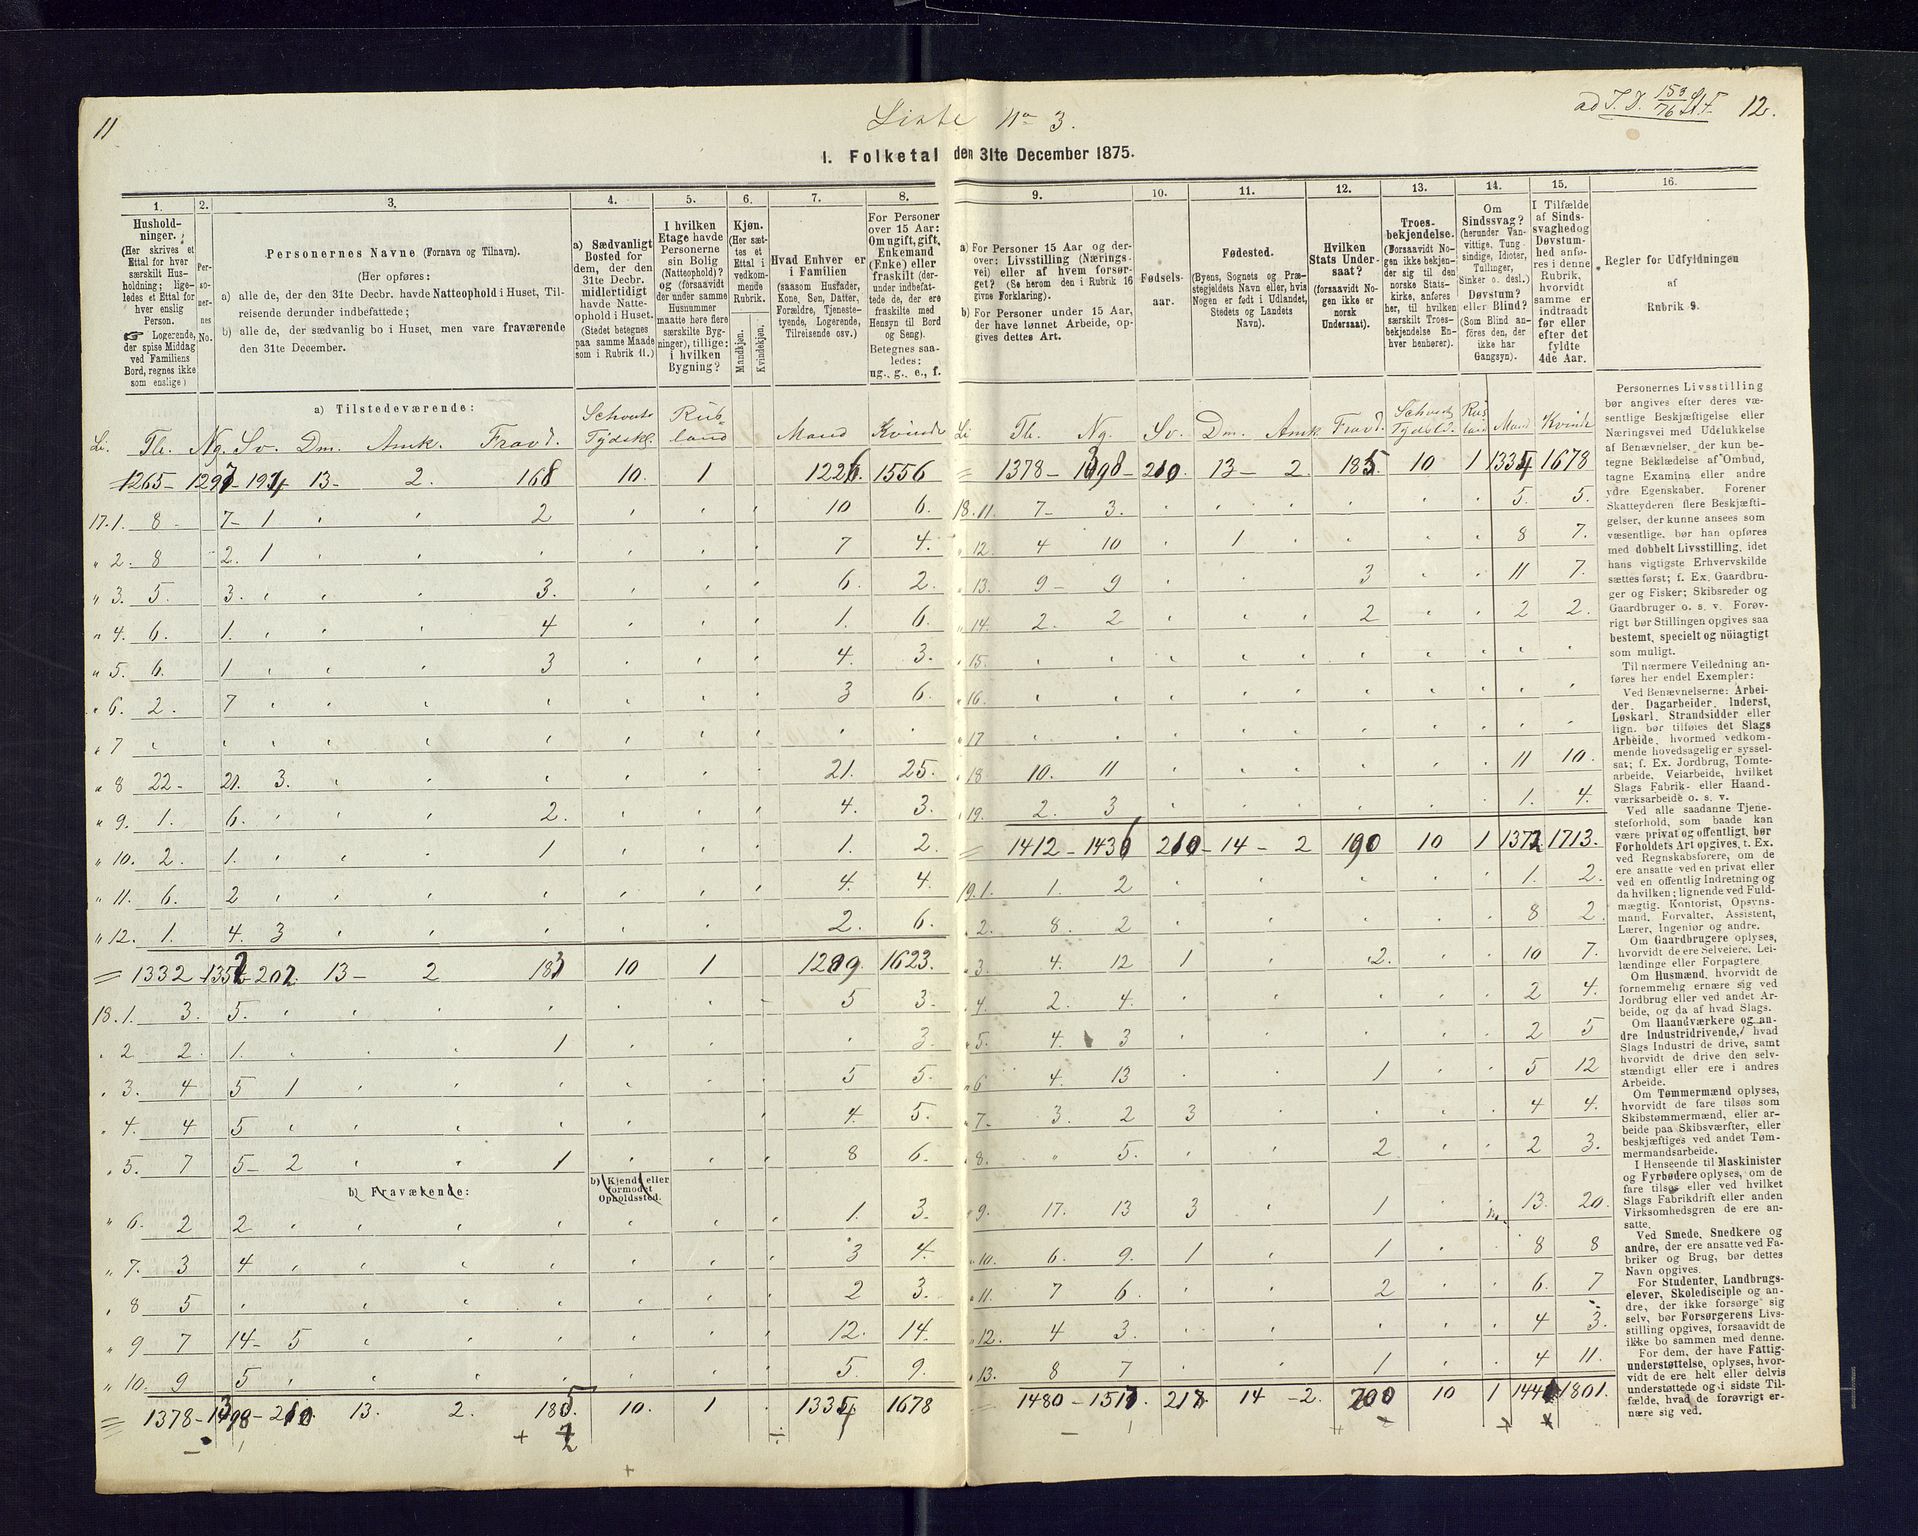 11
Liste No 3.
ad T. D. 153/76 12.
1. Folketal den 31te December 1875.
1. 2. 3. 4. 5. 6. 7. 8. 9. 10. 11. 12. 13. 14. 15. 16.
Hushold-
ninger.
(Her skrives et
Ettal for hver
særskilt Hus-
holdning; lige-
ledes et Ettal for
hver enslig
Person.
☞ Logerende,
der spise Middag
ved Familiens
Bord, regnes ikke
som enslige)
Per-
so-
ner-
nes
No.
Personernes Navne (Fornavn og Tilnavn).
(Her opføres:
a) alle de, der den 31te Decbr. havde Natteophold i Huset, Til-
reisende derunder indbefattede;
b) alle de, der sædvanlig bo i Huset, men vare fraværende
den 31te December.
a) Sædvanligt
Bosted for
dem, der den
31te Decbr.
midlertidigt
havde Natte-
ophold i Huset.
(Stedet betegnes
paa samme Maade
som i Rubrik 11.)
I hvilken
Etage havde
Personerne
sin Bolig
(Natteophold)?
og (forsaavidt
der under samme
Husnummer
maatte høre flere
særskilte Byg-
ninger), tillige:
i hvilken
Bygning?
Kjøn.
(Her sæt-
tes et
Ettal i
vedkom-
mende
Rubrik.
Mandkjøn.
Kvindekjøn.
Hvad Enhver er
i Familien
(saasom Husfader,
Kone, Søn, Datter,
Forældre, Tjeneste-
tyende, Logerende,
Tilreisende osv.)
For Personer
over 15 Aar:
Om ugift, gift,
Enkemand
(Enke) eller
fraskilt (der-
under indbefat-
tede de, der ere
fraskilte med
Hensyn til Bord
og Seng).
Betegnes saa-
ledes:
ug., g., e., f.
a) For Personer 15 Aar og der-
over: Livsstilling (Nærings-
vei) eller af hvem forsør-
get? (Se herom den i Rubrik 16
givne Forklaring).
b) For Personer under 15 Aar,
der have lønnet Arbeide, op-
gives dettes Art.
Fødsels-
aar.
Fødested.
(Byens, Sognets og Præ-
stegjeldets Navn eller, hvis
Nogen er født i Udlandet,
Stedets og Landets
Navn).
Hvilken
Stats Under-
saat?
(forsaavidt No-
gen ikke er
norsk
Undersaat).
Troes-
bekjendelse.
(Forsaavidt No-
gen ikke bekjen-
der sig til den
norske Stats-
kirke, anføres
her, til hvilken
særskilt Troes-
bekjendelse En-
hver henhører).
Om
Sindssvag?
(herunder Van-
vittige, Tung-
sindige, Idioter,
Tullinger,
Sinker o. desl.)
Døvstum?
eller Blind?
(Som Blind an-
føres den, der
ikke har
Gangsyn).
I Tilfælde
af Sinds-
svaghed og
Døvstum-
hed anfø-
res i denne
Rubrik,
hvorvidt
samme er
indtraadt
før eller
efter det
fyldte
4de Aar.
Regler for Udfyldningen
af
Rubrik 9.
a) Tilstedeværende:
Li. Tb. Ng. Sv. Dm. Amk. Fravd. Schweits Tydskl. Rus land Mand Kvinde
1265 - 1297 - 194 13 - 2. 168 10. 1 1226. 1556
17.1. 8 7 - 1 2 10 6.
" 2. 8 2. 1 7 4.
" 3. 5. 3. 3. 6. 2.
" 4. 6. 1. 4 1. 6.
" 5. 6. 1 3 4. 3.
" 6. 2. 7 3 6.
" 7
" 8 22 - 21. 3. 21. 25.
" 9. 1. 6. 2. 4. 3.
" 10. 2. 1. 1 1. 2.
" 11. 6. 2 4. 4.
" 12. 1. 4. 3 2. 6.
= 1332 - 1352 - 202 13 - 2 183 10 1 1289. 1623.
18.1. 3. 5. 5 3.
" 2 2. 1. 1 3.
" 3. 4 5 1 5 5.
" 4. 4 5 4. 5.
" 5. 7 5 - 2 1 8 6.
b) Fraværende:
b) Kjendt eller
formodet
Opholdssted.
" 6. 2 2 1. 3.
" 7. 3 4 3 4.
" 8 5 2 3.
" 9 7 14 - 5 12. 14.
" 10. 9 5 5. 9.
= 1378 - 1398 - 210. 13. 2. 185 10. 1 1334 1678
Li Tb. Ng. Sv. Dm. Amk. Fravd. Schweits Tydskl. Rus land Mand Kvinde
= 1378 - 1398 - 210. 13 - 2. 185 10 1 1334 1678
18.11. 7 - 3. 5. 5.
" 12. 4 10 1 8 7.
" 13. 9 - 9 3 11 7.
" 14. 2. 2 2 2 2.
" 15.
" 16.
" 17
" 18 10. 11 11 10.
" 19. 2. 3 1. 4.
= 1412 - 1436 210 - 14 - 2 190 10 1 1372 1713.
19.1. 1. 2 1. 2.
" 2. 8. 2 8 2.
" 3. 4. 12 1 2. 10 7.
" 4. 2. 4. 2 4.
" 5. 4. 3 2 5
" 6 4. 13 1 5 12
" 7. 3. 2 3 4 4.
" 8. " 5. 2 2 3.
" 9. 17. 13 3 1 13. 20.
" 10. 6. 9. 1 1 8 8
" 11. 7 6. 2 6. 7
" 12. 4 3. 4 3.
" 13. 8 7 1 4 11.
1480 - 1517. 217. 14 - 2. 200 10 1 1441 1801.
Personernes Livsstilling
bør angives efter deres væ-
sentlige Beskjæftigelse eller
Næringsvei med Udelukkelse
af Benævnelser, der kun be-
tegne Beklædelse af Ombud,
tagne Examina eller andre
ydre Egenskaber. Forener
Skatteyderen flere Beskjæfti-
gelser, der kunne ansees som
væsentlige, bør han opføres
med dobbelt Livsstilling, idet
hans vigtigste Erhvervskilde
sættes først; f. Ex. Gaardbru-
ger og Fisker; Skibsreder og
Gaardbruger o. s. v. Forøv-
rigt bør Stillingen opgives saa
bestemt, specielt og nöiagtigt
som muligt.
Til nærmere Veiledning an-
føres her endel Exempler:
Ved Benævnelserne: Arbei-
der, Dagarbeider, Inderst,
Løskarl, Strandsidder eller
lign. bør tilføies det Slags
Arbeide, hvormed vedkom-
mende hovedsagelig er syssel-
sat; f. Ex. Jordbrug, Tomte-
arbeide, Veiarbeide, hvilket
Slags Fabrik- eller Haand-
værksarbeide o. s. v.
Ved alle saadanne Tjene-
steforhold, som baade kan
være privat og offentligt, bør
Forholdets Art opgives, t. Ex.
ved Regnskabsførere, om de
ere ansatte ved en privat eller
ved en offentlig Indretning og
da hvilken; lignende ved Fuld-
mægtig, Kontorist, Opsyns-
mand, Forvalter, Assistent,
Lærer, Ingeniør og andre.
Om Gaardbrugere oplyses,
hvorvidt de ere Selveiere, Lei-
lændinge eller Forpagtere.
Om Husmænd, hvorvidt de
fornemmelig ernære sig ved
Jordbrug eller ved andet Ar-
beide, og da af hvad Slags.
Om Haandværkere og an-
dre Industridrivende, hvad
Slags Industri de drive, samt
hvorvidt de drive den selv-
stændigt eller ere i andres
Arbeide.
Om Tømmermænd oplyses,
hvorvidt de fare tilsøs som
Skibstømmermænd, eller ar-
beide paa Skibsværfter, eller
beskjæftiges ved andet Tøm-
mermandsarbeide.
I Henseende til Maskinister
og Fyrbødere oplyses, om de
fare tilsøs eller ved hvilket
Slags Fabrikdrift eller anden
Virksomhedsgren de ere an-
satte.
Ved Smede, Snedkere og
andre, der ere ansatte ved Fa-
briker og Brug, bør dettes
Navn opgives.
For Studenter, Landbrugs-
elever, Skoledisciple og an-
dre, der ikke forsørge sig
selv, bør Forsørgerens Livs-
stilling opgives, forsaavidt de
ikke bo sammen med denne.
For dem, der have Fattig-
understøttelse, oplyses, hvor-
vidt de ere helt eller delvis
understøttede og i sidste Til-
fælde, hvad de forøvrigt er-
nære sig ved.